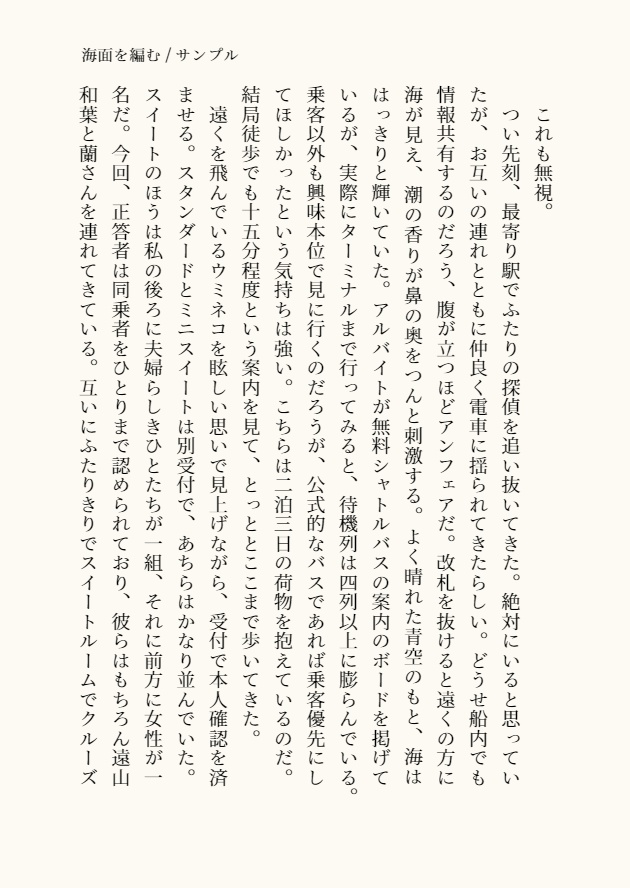 海面を編む / サンプル
これも無視。
つい先刻、最寄り駅でふたりの探偵を追い抜いてきた。絶対にいると思ってい
たが、お互いの連れとともに仲良く電車に揺られてきたらしい。どうせ船内でも
情報共有するのだろう、腹が立つほどアンフェアだ。改札を抜けると遠くの方に
海が見え、潮の香りが鼻の奥をつんと刺激する。よく晴れた青空のもと、海は
はっきりと輝いていた。アルバイトが無料シャトルバスの案内のボードを掲げて
いるが、実際にターミナルまで行ってみると、待機列は四列以上に膨らんでいる。
乗客以外も興味本位で見に行くのだろうが、公式的なバスであれば乗客優先にし
てほしかったという気持ちは強い。こちらは二泊三日の荷物を抱えているのだ。
結局徒歩でも十五分程度という案内を見て、とっととここまで歩いてきた。
遠くを飛んでいるウミネコを眩しい思いで見上げながら、受付で本人確認を済
ませる。スタンダードとミニスイートは別受付で、あちらはかなり並んでいた。
スイートのほうは私の後ろに夫婦らしきひとたちが一組、それに前方に女性が一
名だ。今回、正答者は同乗者をひとりまで認められており、彼らはもちろん遠山
和葉と蘭さんを連れてきている。互いにふたりきりでスイートルームでクルーズ